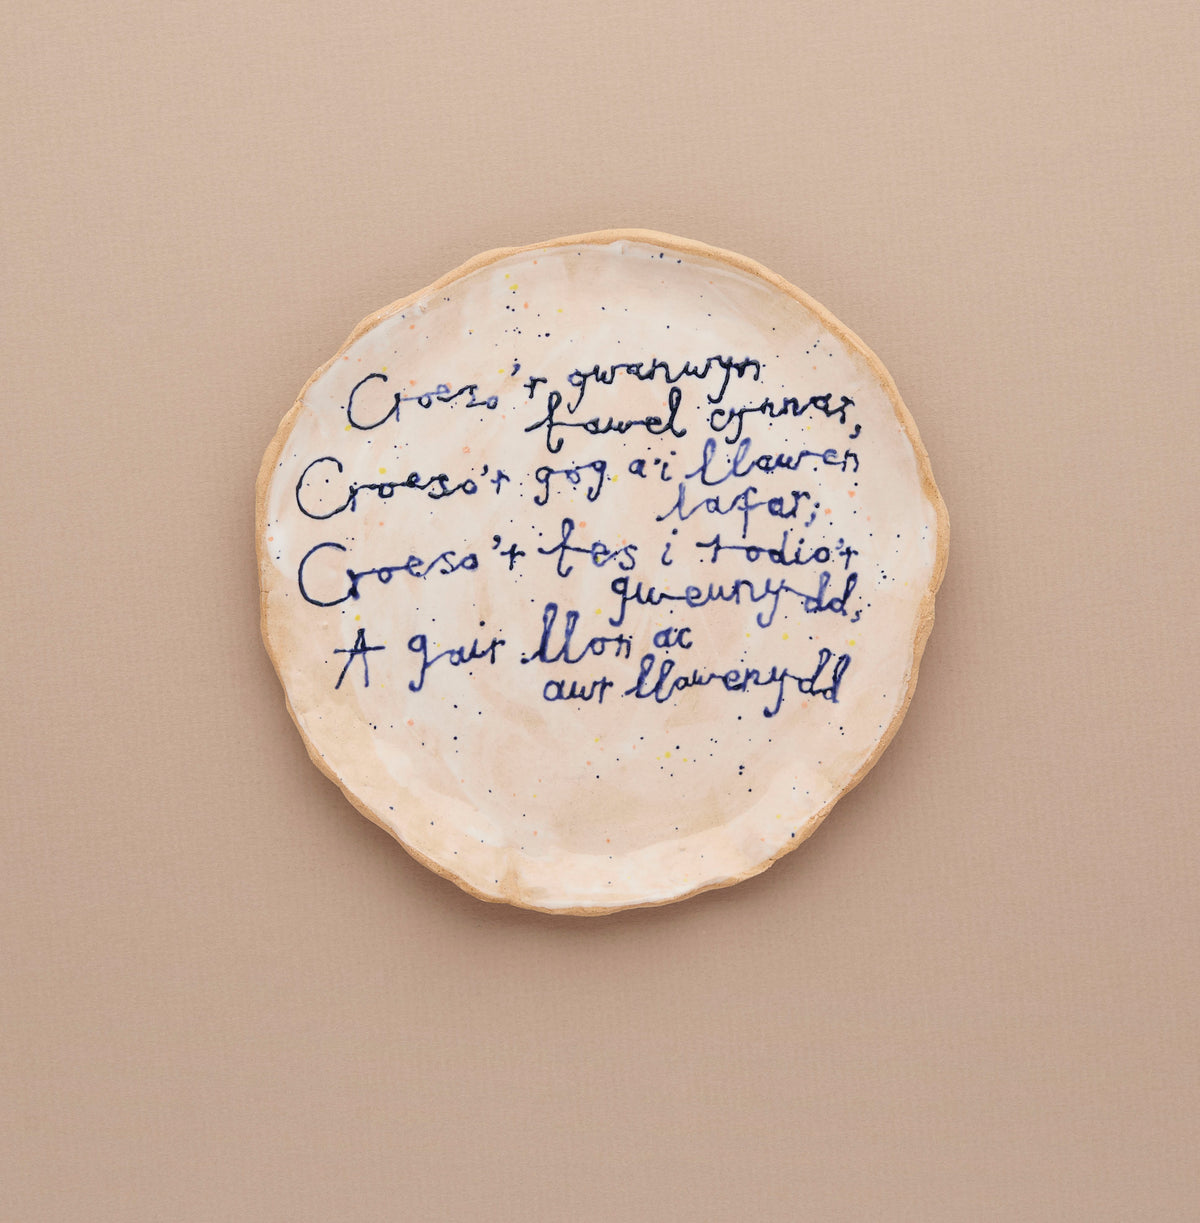 Croeso'r gwanwyn
tawel cynnar,
Croeso'r gog a'i llawen
lafar;
Croeso'r tes i rodio'r
gweunydd,
A gair llon ac
awr llawenydd